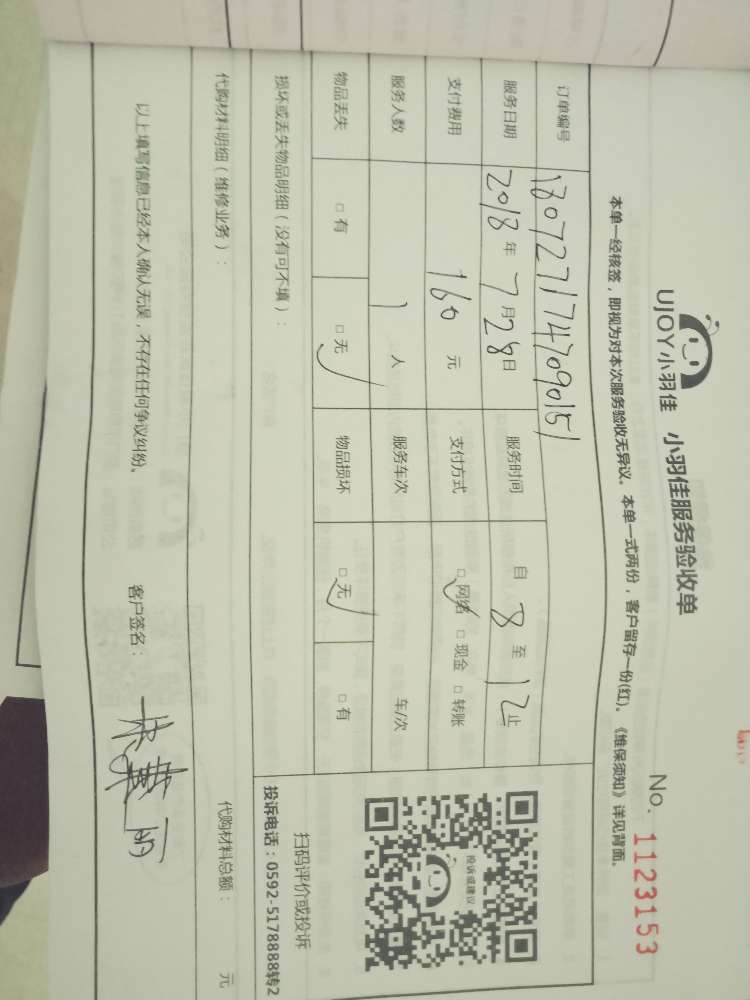 UJOY小羽佳 小羽佳服务验收单
No. 1123153
本单一经核签，即视为对本次服务验收无异议。本单一式两份，客户留存一份(红)。《维保须知》详见背面。
订单编号 180727174709015
服务日期 2018年7月28日 服务时间 自 8 至 12 止
支付费用 160 元 支付方式 □网络 ✓ □现金 □转账
服务人数 1 人 服务车次 车/次
物品丢失 □有 □无 ✓ 物品损坏 □无 ✓ □有
投诉或建议
扫码评价或投诉
投诉电话：0592-5178888转2
损坏或丢失物品明细（没有可不填）：
代购材料明细（维修业务）： 代购材料总额： 元
以上填写信息已经本人确认无误，不存在任何争议纠纷。 客户签名：